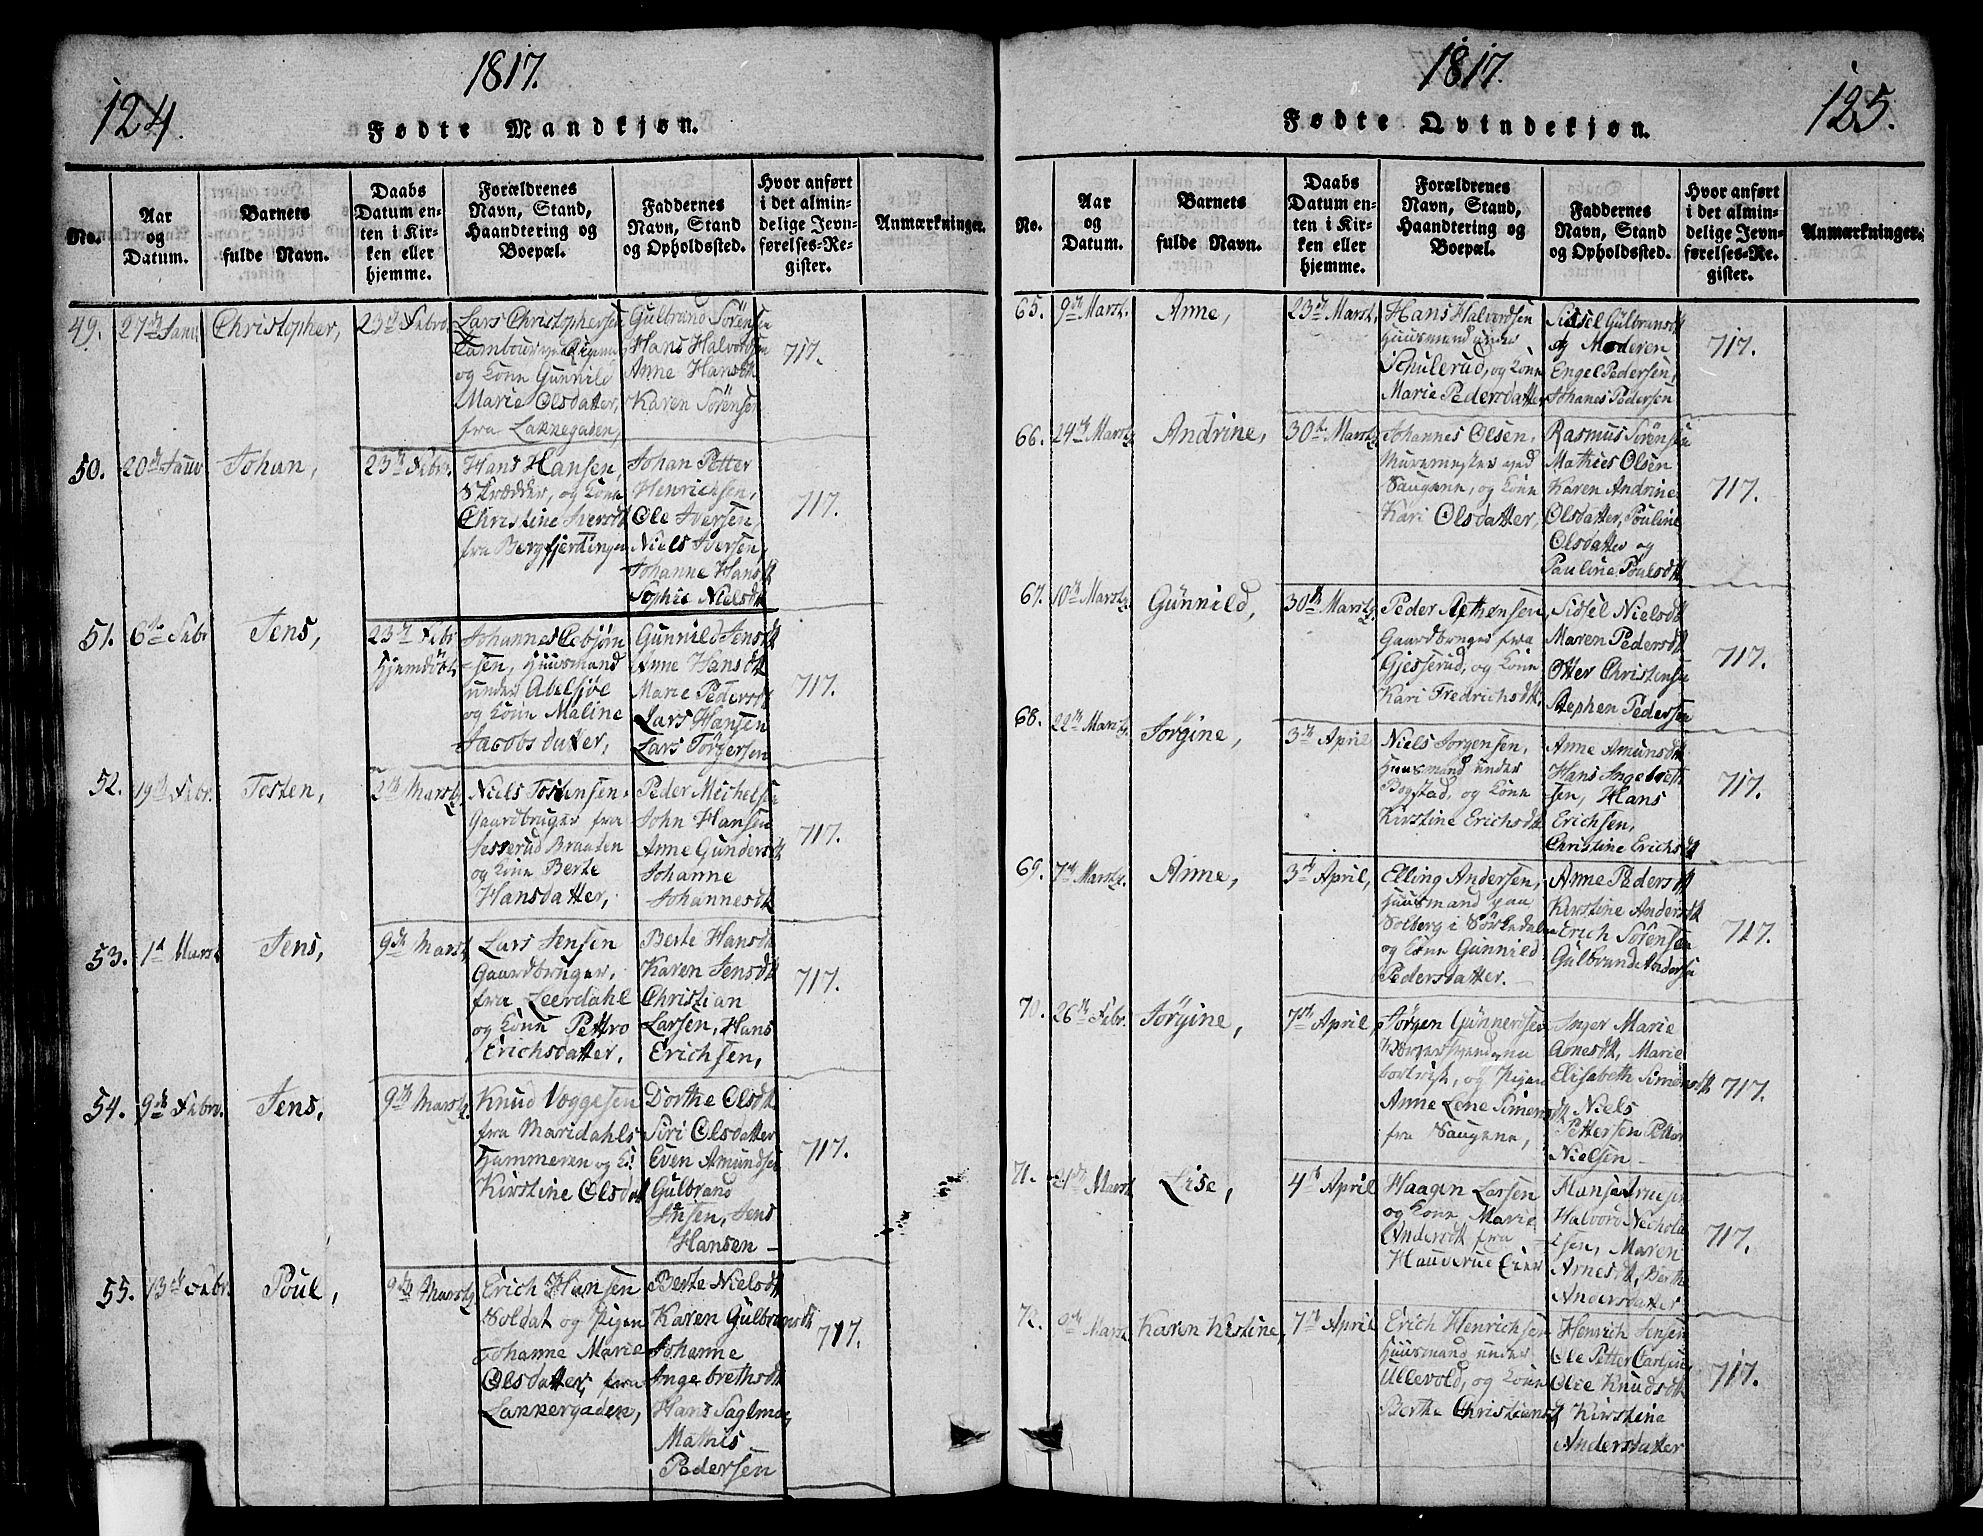 124
1817.
Fødte Mandkjøn.
No.
Aar
og
Datum.
Barnets
fulde Navn.
Daabs
Datum en-
ten i Kir-
ken eller
hjemme.
Forældrenes
Navn, Stand,
Haandtering og
Boepæl.
Faddernes
Navn, Stand
og Opholdssted.
Hvor anført
i det almin-
delige Jevn-
førelses-Re-
gister.
Anmærkninger.
49.
Christopher,
Lars Christophersen
og Kone Gunnild
Marie Olsdatter,
fra Lakkegaden,
Gulbrand Sörensen
Hans Halvordsen
Anne Hansdt
Karen Sörensen
717.
50.
Johan,
23de Febr.
Hans Hansen,
Skrædder, og Kone
Christine Iversdt
fra Bergfjerdingen
Johan Petter
Henrichsen,
Ole Iversen,
Niels Iversen,
Johanne Hansdt
Sophie Nielsdt
717.
51.
6te Febr
Jens,
23de Febr
Hjemdöbt
Johannes
sen, Huusmand
under Abelsjöe
og Kone Maline
Jacobsdatter,
Gunnild Jensdt
Anne Hansdt
Marie Pedersdt
Lars Hansen
Lars Törgersen
717.
52.
19de Febr.
Tosten,
2den Marts
Niels Tostensen
Gaardbruger fra
Jesserud Braaten
og Kone Berte
Hansdatter,
Peder Michelsen
John Hansen
Anne Gundersdt
Johanne
Johannesdt
717.
53.
1ste Marts
Jens,
9de Marts
Lars Jensen
Gaardbruger,
fra Leerdahl
og Kone Pettro
Erichsdatter,
Berte Hansdt
Karen Jensdt
Christian
Larsen, Hans
Erichsen,
717.
54.
9de Febr.
Jens,
9de Marts
Knud Voggesen
fra Maridahls
Hammeren og K:
Kirstine Olsdt
Dorthe Olsdt
Siri Olsdatter
Even Amundsen
Gulbrand
Jensen, Jens
Hansen
717.
55.
13de Febr.
Poul,
9de Marts
Erich Hansen
Soldat og Pigen
Johanne Marie
Olsdatter, fra
Lakkergaden,
Berte Nielsdt
Karen Gulbransdt
Johanne
Ingebrethsdt
Hans
Mathis
Pedersen
717.
125.
1817.
Fødte Qvindekjøn.
No.
Aar
og
Datum.
Barnets
fulde Navn.
Daabs
Datum en-
ten i Kir-
ken eller
hjemme.
Forældrenes
Navn, Stand,
Haandtering og
Boepæl.
Faddernes
Navn, Stand
og Opholdssted.
Hvor anført
i det almin-
delige Jevn-
førelses-Re-
gister.
Anmærkninger.
65.
9de Marts.
Anne,
23de Marts,
Hans Halvordsen
Huusmand under
Schulerud, og Kone
Marie Pedersdatter
Sidsel Gulbransdt
og Moderen
Engel Pedersen,
Johanes Pedersen
717.
66.
24de Marts
Andrine,
30te Marts
Johannes Olsen,
Muremester ved
Saugene, og Kone
Kari Olsdatter,
Rasmus Sörensen
Mathies Olsen
Karen Andrine
Olsdatter, Pouline
Olsdatter og
Pauline Poulsdt
717.
67.
10de Marts
Günnild,
30te Marts
Peder
Gaardbruger fra
Gjesserud, og Kone
Kari Fredrichsdt,
Sidsel Nielsdt
Maren Pedersdt
Otter Christensen
Stephen Pedersen
717.
68.
22de Marts
Jörgine,
3de April,
Niels Jorgensen,
Huusmand under
Bogstad, og Kone
Kirstine Erichsdt
Anne Amunsdt
Hans Ingebreth
sen, Hans
Erichsen,
Christine Erichsdt
717.
69.
7de Marts.
Anne,
3de April,
Elling Andersen,
Huusmand paa
Solberg i Sörkedalen
og Kone Gunnild
Pedersdatter.
Anne Pedersdt
Kirstine Andersdt
Erich Sörensen
Gulbrand Andersen
717.
70.
26de Febr.
Jörgine,
7de April,
Jörgen Günnersen
bortreist, og Pigen
Anne Lene Simensdt
fra Saugene,
Inger Marie
Arnesdt, Marie
Elisabeth Simonsdt
Niels
Pettersen Petter
Nielsen
717.
71.
21de Marts
Lise,
4de April
Haagen Larsen
og Kone Marie
Andersdt fra
Halvord Nichola
isen, Maren
Arnesdt, Berthe
Andersdatter
717.
72.
Karen Kistine,
7de April
Erich Henrichsen
Huusmand under
Ullevold, og Kone
Berthe Christiansdt
Henrich Jensen
Ole Petter Carlsen,
Olie Knudsdt
Kirstine
Andersdatter
717.